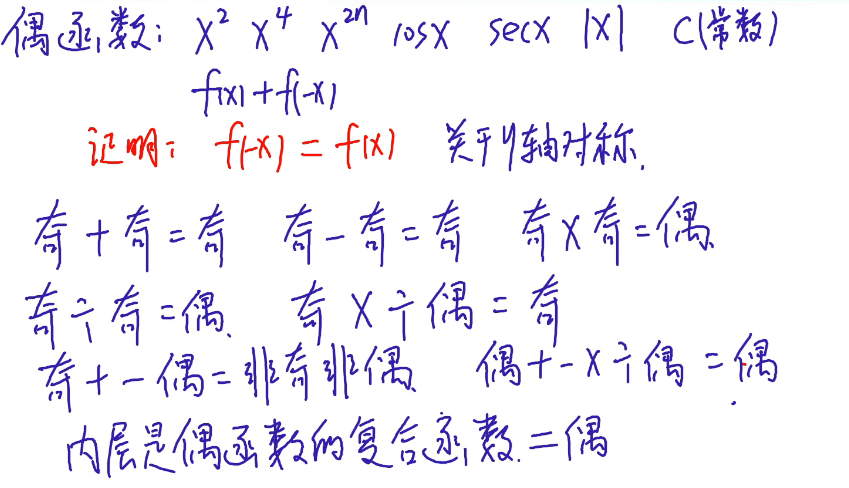 偶函数: x² x⁴ x²ⁿ cosx secx |x| C(常数)
f(x)+f(-x)
证明: f(-x) = f(x) 关于y轴对称.
奇+奇=奇 奇-奇=奇 奇×奇=偶.
奇÷奇=偶. 奇×÷偶=奇
奇+-偶=非奇非偶. 偶+-×÷偶=偶.
内层是偶函数的复合函数.=偶